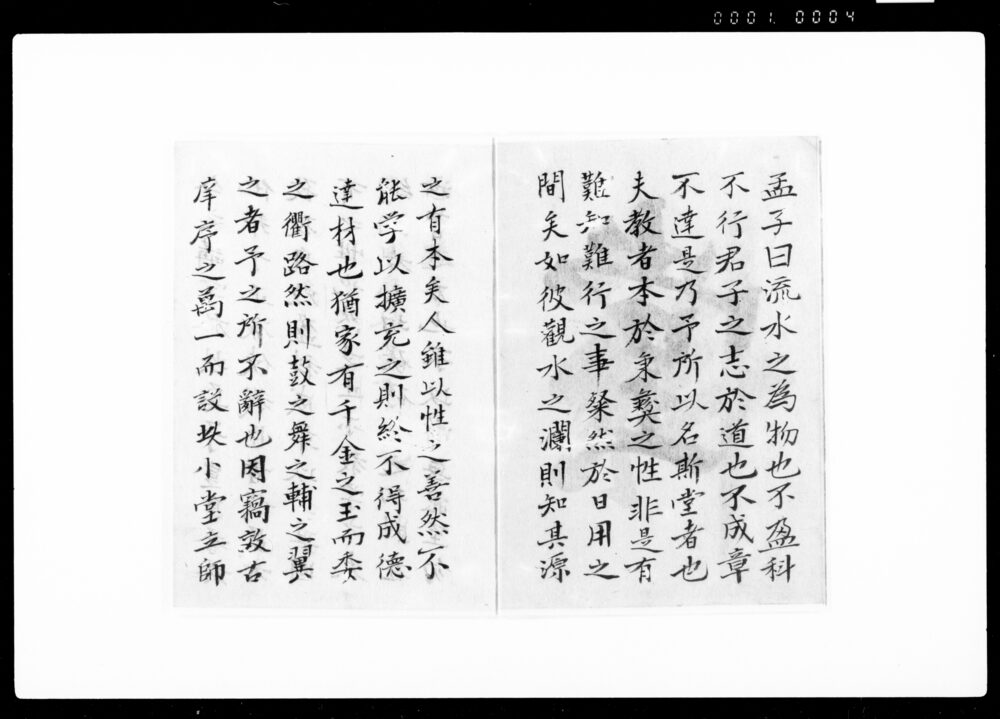 0001.0004
孟子曰流水之為物也不盈科
不行君子之志於道也不成章
不達是乃予所以名斯堂者也
夫教者本於秉彝之性非是有
難知難行之事粲然於日用之
間矣如彼觀水之瀾則知其源
之有本矣人雖以性之善然不
能学以擴充之則終不得成德
達材也猶家有千金之玉而委
之衢路然則鼓之舞之輔之翼
之者予之所不辭也因竊效古
庠序之萬一而設此小堂立師